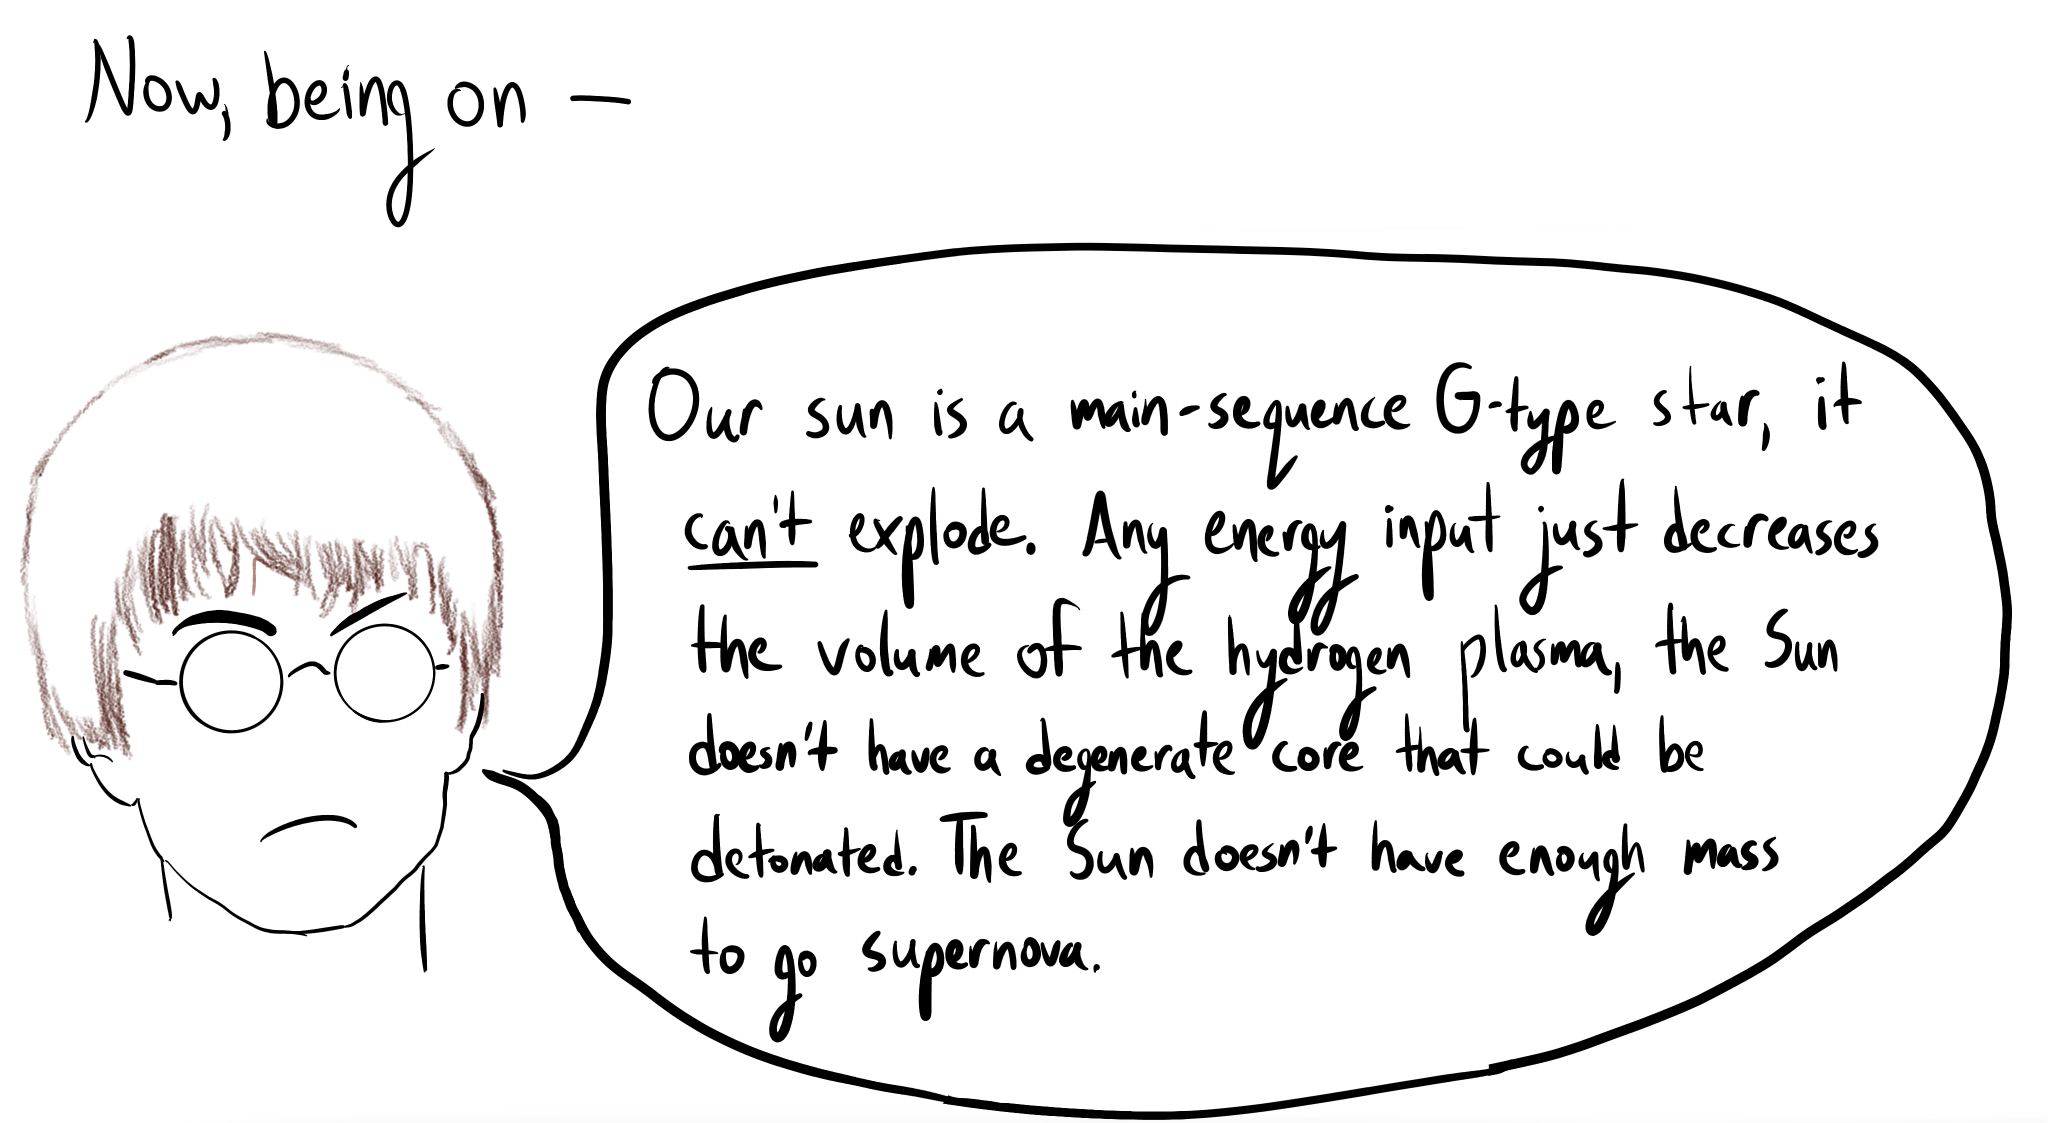 Now, being on —
Our sun is a main-sequence G-type star, it
can't explode. Any energy input just decreases
the volume of the hydrogen plasma, the Sun
doesn't have a degenerate core that could be
detonated. The Sun doesn't have enough mass
to go supernova.